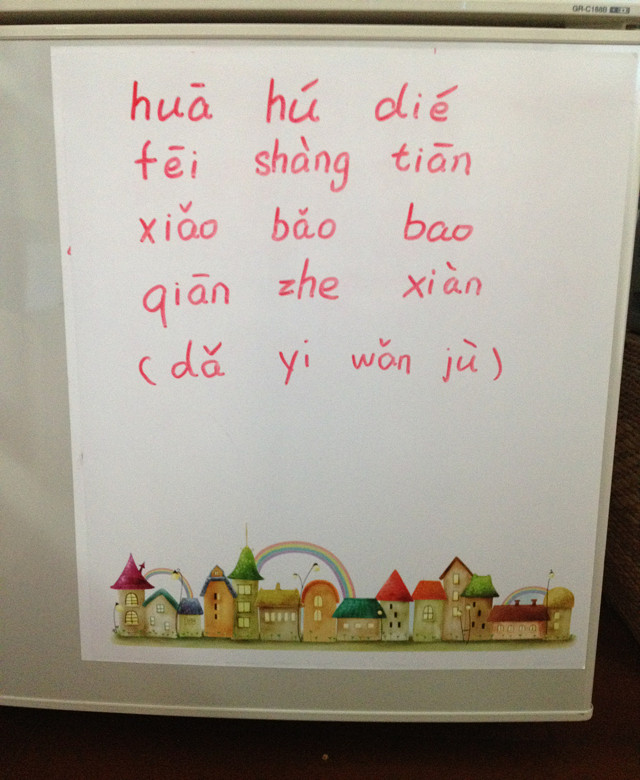 GR-C188B
huā hú dié
fēi shàng tiān
xiǎo bǎo bao
qiān zhe xiàn
(dǎ yi wǎn jù)